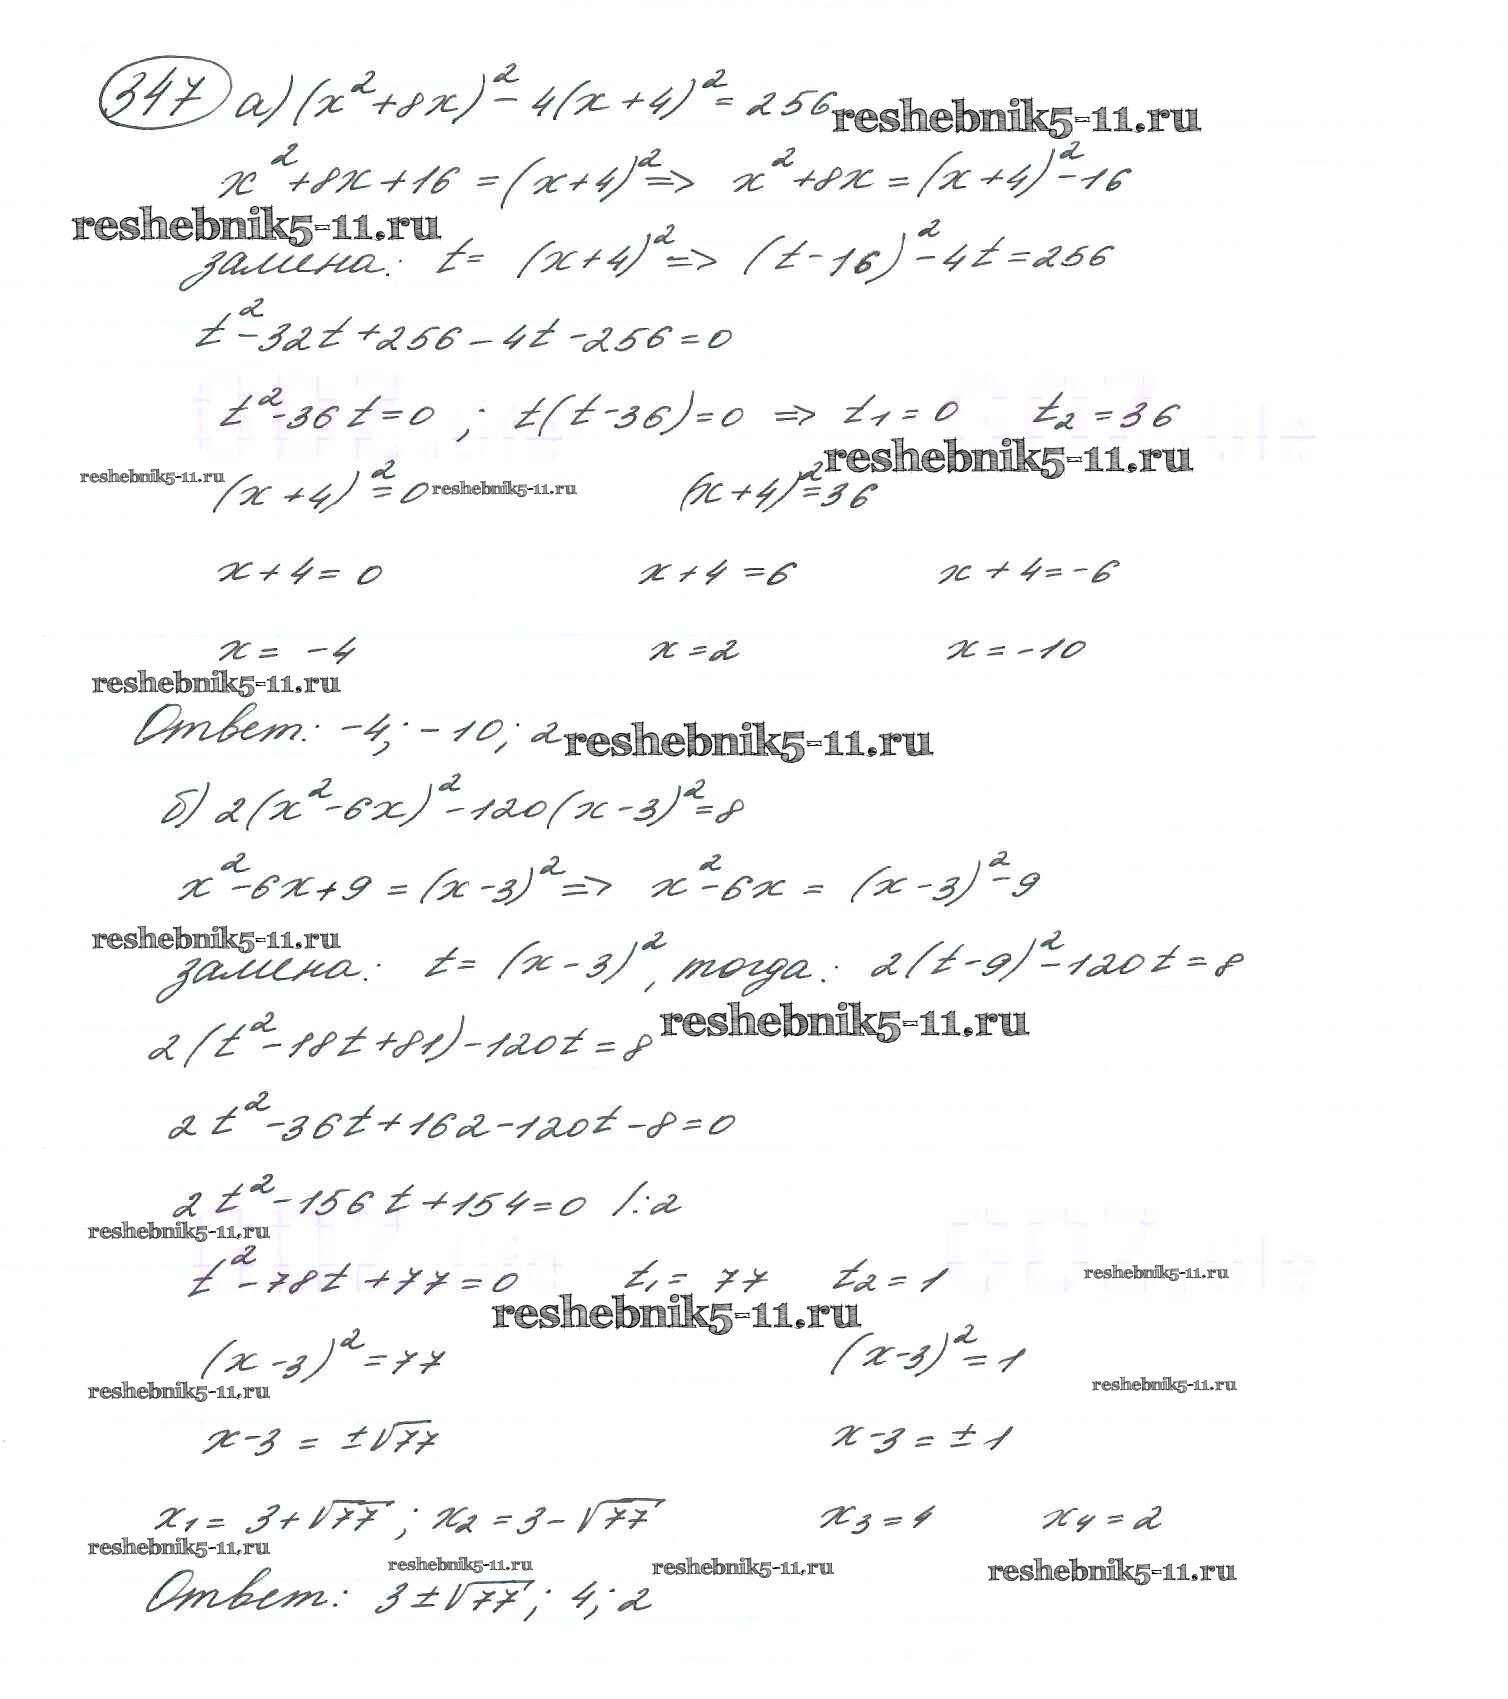 347 а) (x²+8x)²-4(x+4)²=256 reshebnik5-11.ru
x²+8x+16=(x+4)²=> x²+8x=(x+4)²-16
reshebnik5-11.ru
замена: t= (x+4)²=> (t-16)²-4t=256
t²-32t+256-4t-256=0
t²-36t=0 ; t(t-36)=0 => t₁=0 t₂=36
reshebnik5-11.ru
reshebnik5-11.ru (x+4)²=0 reshebnik5-11.ru (x+4)²=36
x+4=0 x+4=6 x+4=-6
x= -4 x=2 x=-10
reshebnik5-11.ru
Ответ: -4; -10; 2 reshebnik5-11.ru
б) 2(x²-6x)²-120(x-3)²=8
x²-6x+9=(x-3)²=> x²-6x = (x-3)²-9
reshebnik5-11.ru
замена: t= (x-3)², тогда: 2(t-9)²-120t=8
2(t²-18t+81)-120t=8 reshebnik5-11.ru
2t²-36t+162-120t-8=0
2t²-156t+154=0 /:2
reshebnik5-11.ru
t²-78t+77=0 t₁= 77 t₂=1 reshebnik5-11.ru
reshebnik5-11.ru
(x-3)²=77 (x-3)²=1
reshebnik5-11.ru reshebnik5-11.ru
x-3 = ±√77 x-3=±1
x₁= 3+√77 ; x₂=3-√77 x₃=4 x₄=2
reshebnik5-11.ru reshebnik5-11.ru reshebnik5-11.ru reshebnik5-11.ru
Ответ: 3±√77; 4; 2